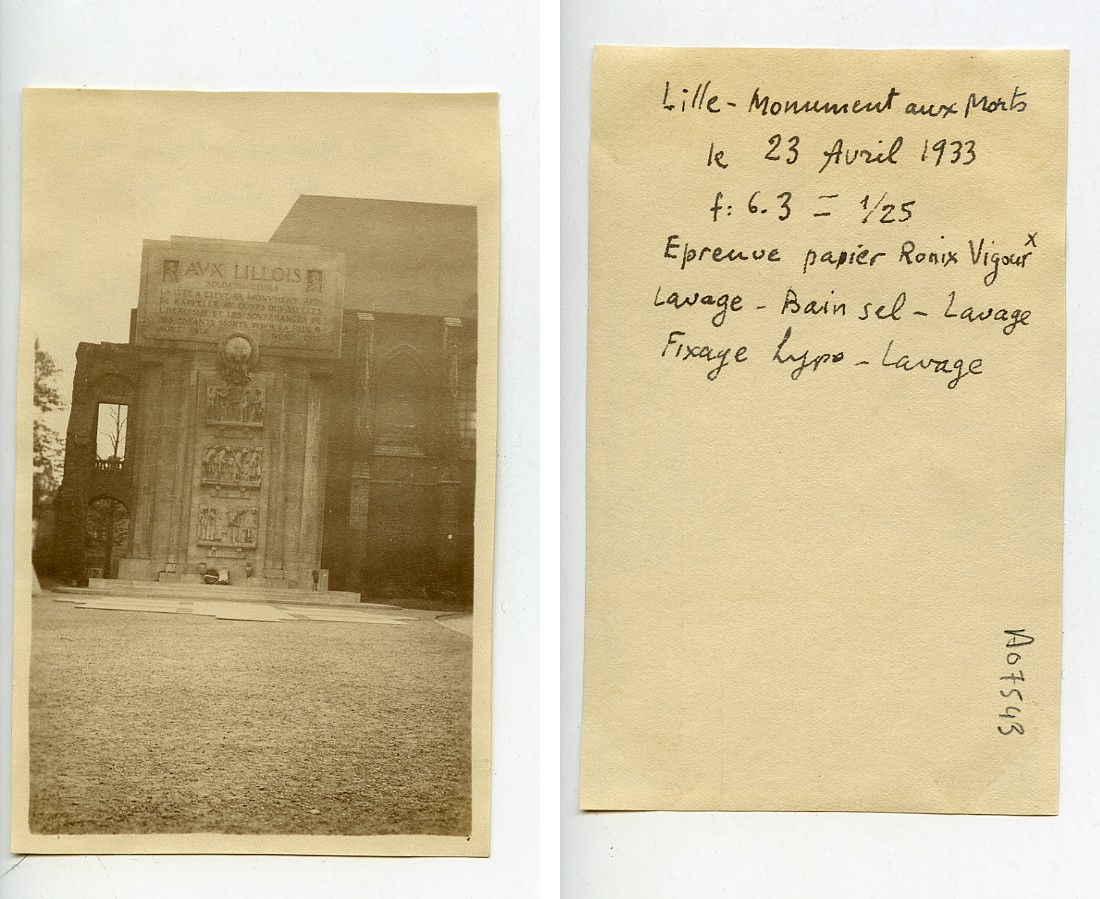 AVX LILLOIS
SOLDATS & CIVILS
LA CITE A ELEVE CE MONUMENT AFIN
DE RAPPELER AV COVRS DES SIECLES
L'HEROISME ET LES SOVFFRANCES DE
SES ENFANTS MORTS POVR LA PAIX
AOVT 1914
Lille - Monument aux Morts
le 23 Avril 1933
f: 6.3 = 1/25
Epreuve papier Ronix Vigour^x
Lavage - Bain sel - Lavage
Fixage hypo - Lavage
A07543